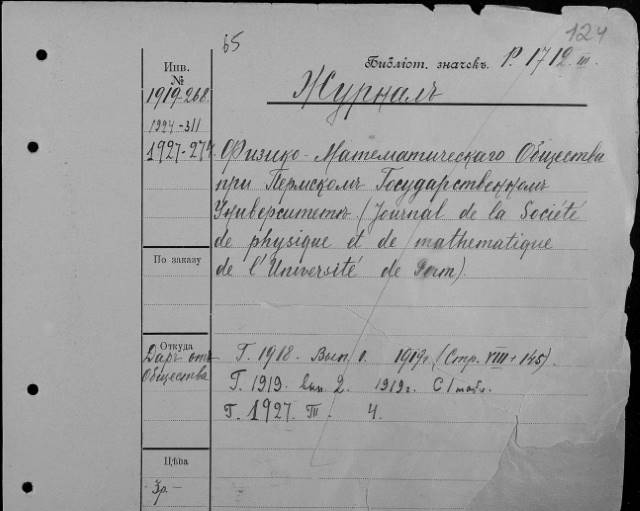 65
124
Библіот. значекъ. Р. 1712 III.
Инв. №
1919-268.
1924-311
1927-274.
Журналъ
Физико-Математическаго Общества
при Пермскомъ Государственномъ
Университетѣ (Journal de la Société
de physique et de mathematique
de l'Université de Perm).
По заказу
Откуда
Даръ отъ
Общества
Г. 1918. Вып. 1. 1919г. (Стр. VIII + 145).
Г. 1919. Вып. 2. 1919г. С 1 табл.
Г. 1927. III. 4.
Цѣна
Зр. —